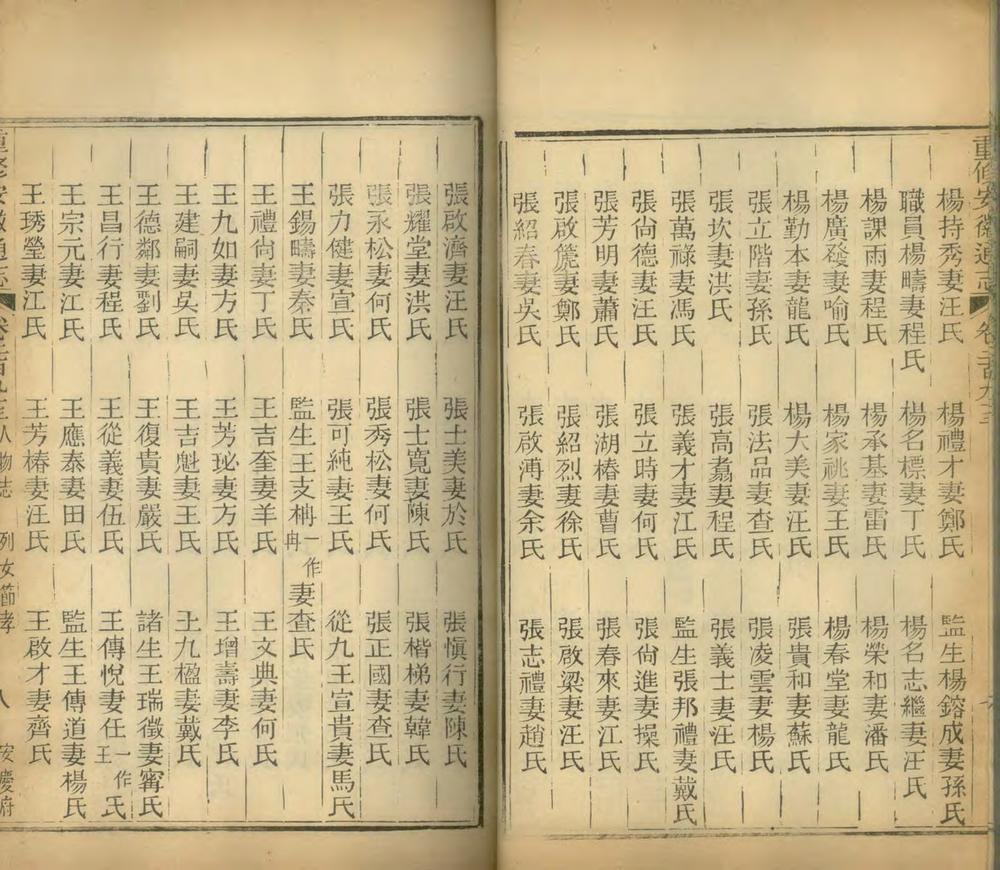 重修安徽通志 卷
楊持秀妻汪氏 楊禮才妻鄭氏 監生楊鎔成妻孫氏
職員楊疇妻程氏 楊名標妻丁氏 楊名志繼妻汪氏
楊課雨妻程氏 楊承基妻雷氏 楊榮和妻潘氏
楊廣發妻喻氏 楊家祧妻王氏 楊春堂妻龍氏
楊勤本妻龍氏 楊大美妻汪氏 張貴和妻蘇氏
張立階妻孫氏 張法品妻查氏 張凌雲妻楊氏
張坎妻洪氏 張高翥妻程氏 張義士妻汪氏
張萬祿妻馮氏 張義才妻江氏 監生張邦禮妻戴氏
張尙德妻汪氏 張立時妻何氏 張尙進妻操氏
張芳明妻蕭氏 張湖椿妻曹氏 張春來妻江氏
張啟篪妻鄭氏 張紹烈妻徐氏 張啟梁妻汪氏
張紹春妻吳氏 張啟溥妻余氏 張志禮妻趙氏
張啟濟妻汪氏 張士美妻於氏 張愼行妻陳氏
張耀堂妻洪氏 張士寬妻陳氏 張楷梯妻韓氏
張永松妻何氏 張秀松妻何氏 張正國妻查氏
張力健妻宣氏 張可純妻王氏 從九王宣貴妻馬氏
王錫疇妻秦氏 監生王支柟一作冉妻查氏
王禮尙妻丁氏 王吉奎妻羊氏 王文典妻何氏
王九如妻方氏 王芳珌妻方氏 王增壽妻李氏
王建嗣妻吳氏 王吉魁妻王氏 王九楹妻戴氏
王德鄰妻劉氏 王復貴妻嚴氏 諸生王瑞徵妻甯氏
王昌行妻程氏 王從義妻伍氏 王傳悅妻任一作王氏
王宗元妻江氏 王應泰妻田氏 監生王傳道妻楊氏
王琇瑩妻江氏 王芳椿妻汪氏 王啟才妻齊氏
重修安徽通志 卷 人物志 列女節孝 八 安慶府